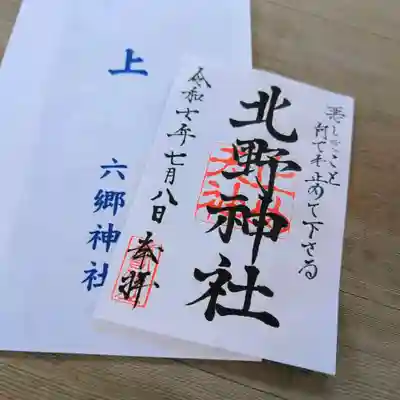 上
六郷神社
悪しきこと
何でも止めて下さる
北野神社
令和七年七月八日
奉拝